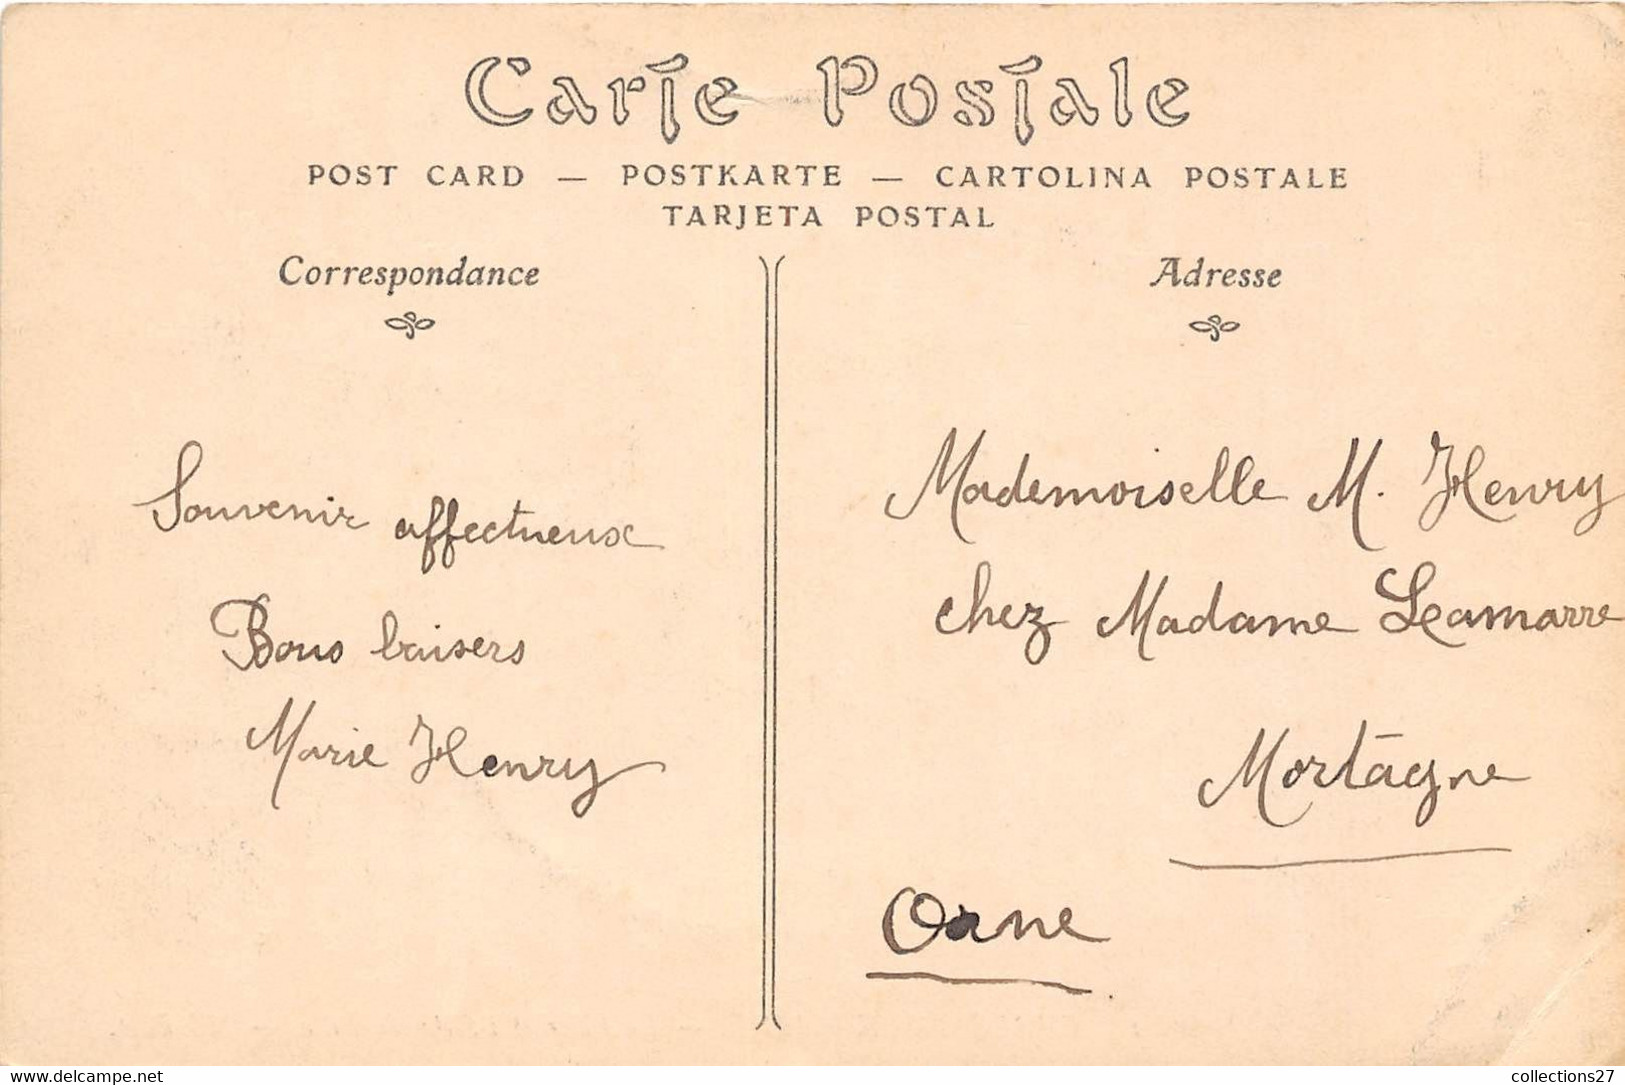 Carte Postale
POST CARD — POSTKARTE — CARTOLINA POSTALE
TARJETA POSTAL
Correspondance
Souvenir affectueux
Bons baisers
Marie Henry
Adresse
Mademoiselle M. Henry
chez Madame Leamarre
Mortagne
Orne
www.delcampe.net
collections27